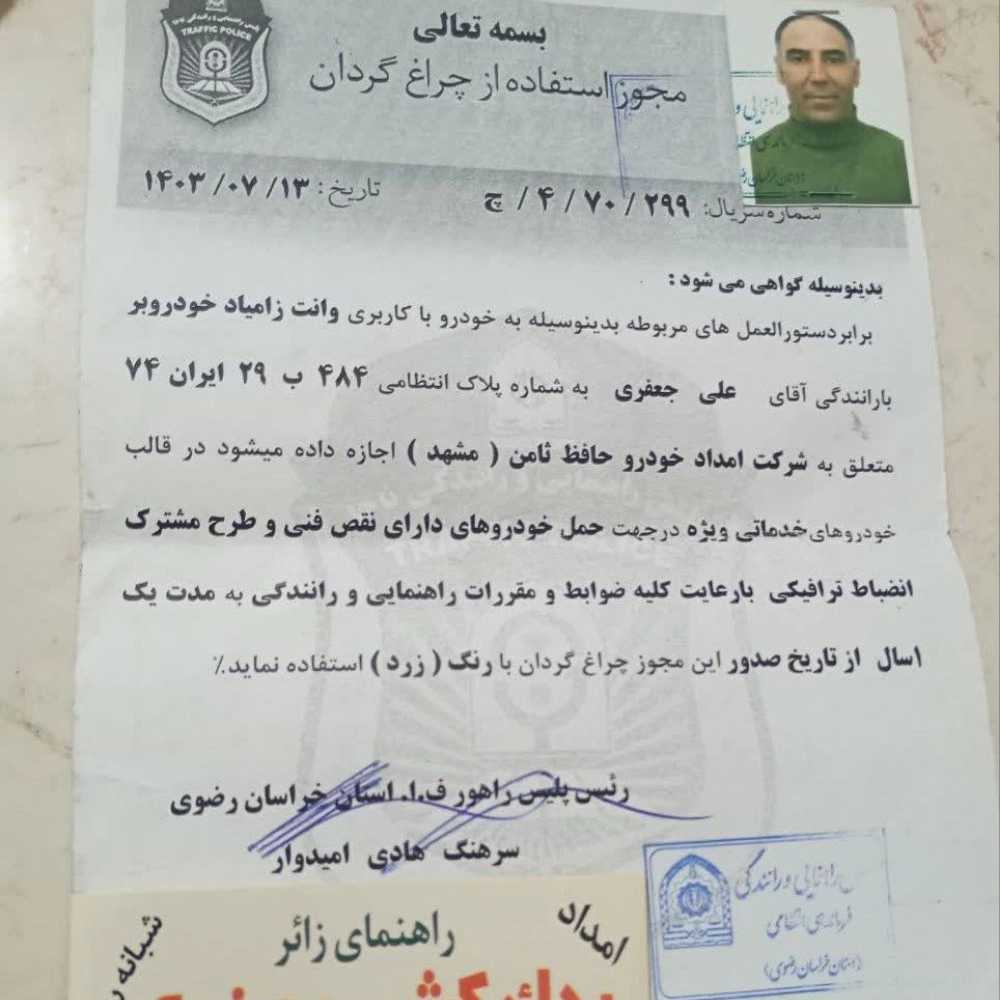 پلیس راهنمایی و رانندگی ناجا
TRAFFIC POLICE
بسمه تعالی
مجوز استفاده از چراغ گردان
تاریخ: ۱۴۰۳/۰۷/۱۳
شماره سریال: ۲۹۹ / ۷۰ / ۴ / چ
بدینوسیله گواهی می شود :
برابردستورالعمل های مربوطه بدینوسیله به خودرو با کاربری وانت زامیاد خودروبر
بارانندگی آقای علی جعفری به شماره پلاک انتظامی ۴۸۴ ب ۲۹ ایران ۷۴
متعلق به شرکت امداد خودرو حافظ ثامن ( مشهد ) اجازه داده میشود در قالب
خودروهای خدماتی ویژه درجهت حمل خودروهای دارای نقص فنی و طرح مشترک
انضباط ترافیکی بارعایت کلیه ضوابط و مقررات راهنمایی و رانندگی به مدت یک
اسال از تاریخ صدور این مجوز چراغ گردان با رنگ ( زرد ) استفاده نماید.٪
رئیس پلیس راهور ف.ا. استان خراسان رضوی
سرهنگ هادی امیدوار
راهنمایی ورانندگی
فرماندهی انتظامی
(استان خراسان رضوی)
امداد
راهنمای زائر
شبانه